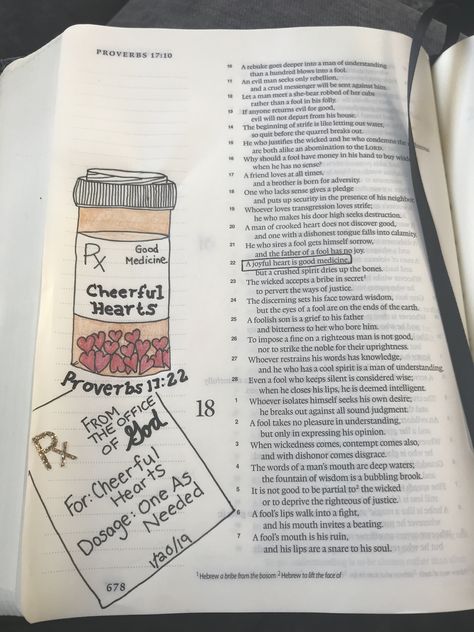 PROVERBS 17:10
Rx
Good
Medicine
Cheerful
Hearts
Proverbs 17:22
Rx
FROM
THE OFFICE
OF God
For: Cheerful
Hearts
Dosage: One As
Needed
1/20/19
678
10 A rebuke goes deeper into a man of understanding
than a hundred blows into a fool.
11 An evil man seeks only rebellion,
and a cruel messenger will be sent against him.
12 Let a man meet a she-bear robbed of her cubs
rather than a fool in his folly.
13 If anyone returns evil for good,
evil will not depart from his house.
14 The beginning of strife is like letting out water,
so quit before the quarrel breaks out.
15 He who justifies the wicked and he who condemns the
are both alike an abomination to the LORD.
16 Why should a fool have money in his hand to buy
when he has no sense?
17 A friend loves at all times,
and a brother is born for adversity.
18 One who lacks sense gives a pledge
and puts up security in the presence of his neighbor.
19 Whoever loves transgression loves strife;
he who makes his door high seeks destruction.
20 A man of crooked heart does not discover good,
and one with a dishonest tongue falls into calamity.
21 He who sires a fool gets himself sorrow,
and the father of a fool has no joy.
22 A joyful heart is good medicine,
but a crushed spirit dries up the bones.
23 The wicked accepts a bribe in secret¹
to pervert the ways of justice.
24 The discerning sets his face toward wisdom,
but the eyes of a fool are on the ends of the earth.
25 A foolish son is a grief to his father
and bitterness to her who bore him.
26 To impose a fine on a righteous man is not good,
nor to strike the noble for their uprightness.
27 Whoever restrains his words has knowledge,
and he who has a cool spirit is a man of understanding.
28 Even a fool who keeps silent is considered wise;
when he closes his lips, he is deemed intelligent.
18
1 Whoever isolates himself seeks his own desire;
he breaks out against all sound judgment.
2 A fool takes no pleasure in understanding,
but only in expressing his opinion.
3 When wickedness comes, contempt comes also,
and with dishonor comes disgrace.
4 The words of a man's mouth are deep waters;
the fountain of wisdom is a bubbling brook.
5 It is not good to be partial to² the wicked
or to deprive the righteous of justice.
6 A fool's lips walk into a fight,
and his mouth invites a beating.
7 A fool's mouth is his ruin,
and his lips are a snare to his soul.
¹ Hebrew a bribe from the bosom ² Hebrew to lift the face of